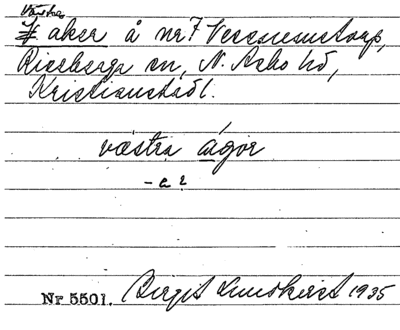 Västra
åker å nr 7
Riseberga sn, N. Åsbo hd,
Kristianstads l.
västra ågor
- a 2
Nr 5501. Birgit 1935